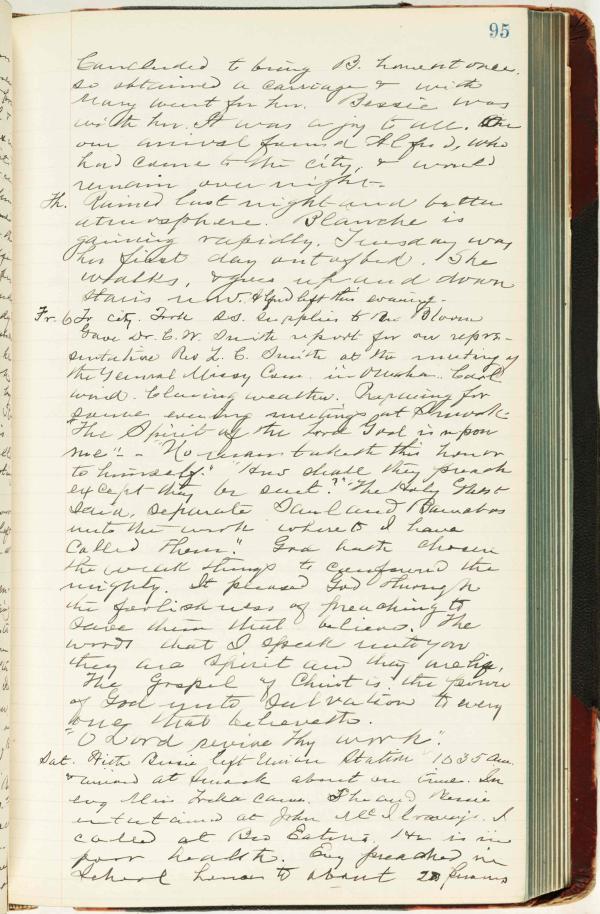 95
Concluded to bring B. home at once.
so obtained a carriage & with
Mary went for her. Bessie was
with her. It was a joy to all. On
our arrival found Alfred, who
had come to the city, & would
remain over night.
Th. Rained last night and better
atmosphere. Blanche is
gaining rapidly. Tuesday was
her first day out of bed. She
walks, & goes up and down
stairs now. Alfred left this evening.
Fr. 6 In city. Took S.S. supplies to Bloom
Gave Dr. C. W. Smith report for our repre-
sentative Rev L. C. Smith at the meeting of
the General Missy Com. in Omaha. Cool
wind. Clearing weather. Preparing for
some evening meetings at
"The Spirit of the Lord God is upon
me" - "No man taketh this honor
to himself." "How shall they preach
except they be sent?" "The Holy Ghost
said, separate Saul and Barnabas
unto the work whereto I have
called them." God hath chosen
the weak things to confound the
mighty. It pleased God through
the foolishness of preaching to
save them that believe. The
words that I speak unto you
they are spirit and they are life.
The Gospel of Christ is the power
of God unto Salvation to every
one that believeth.
"O Lord revive thy work".
Sat. With Bessie left Union Station 10 35 am.
& arrived at about on time. In
evg Miss came. She and Bessie
entertained at John I
called at Bro He is in
poor health. Evg preached in
School house to about 20 persons